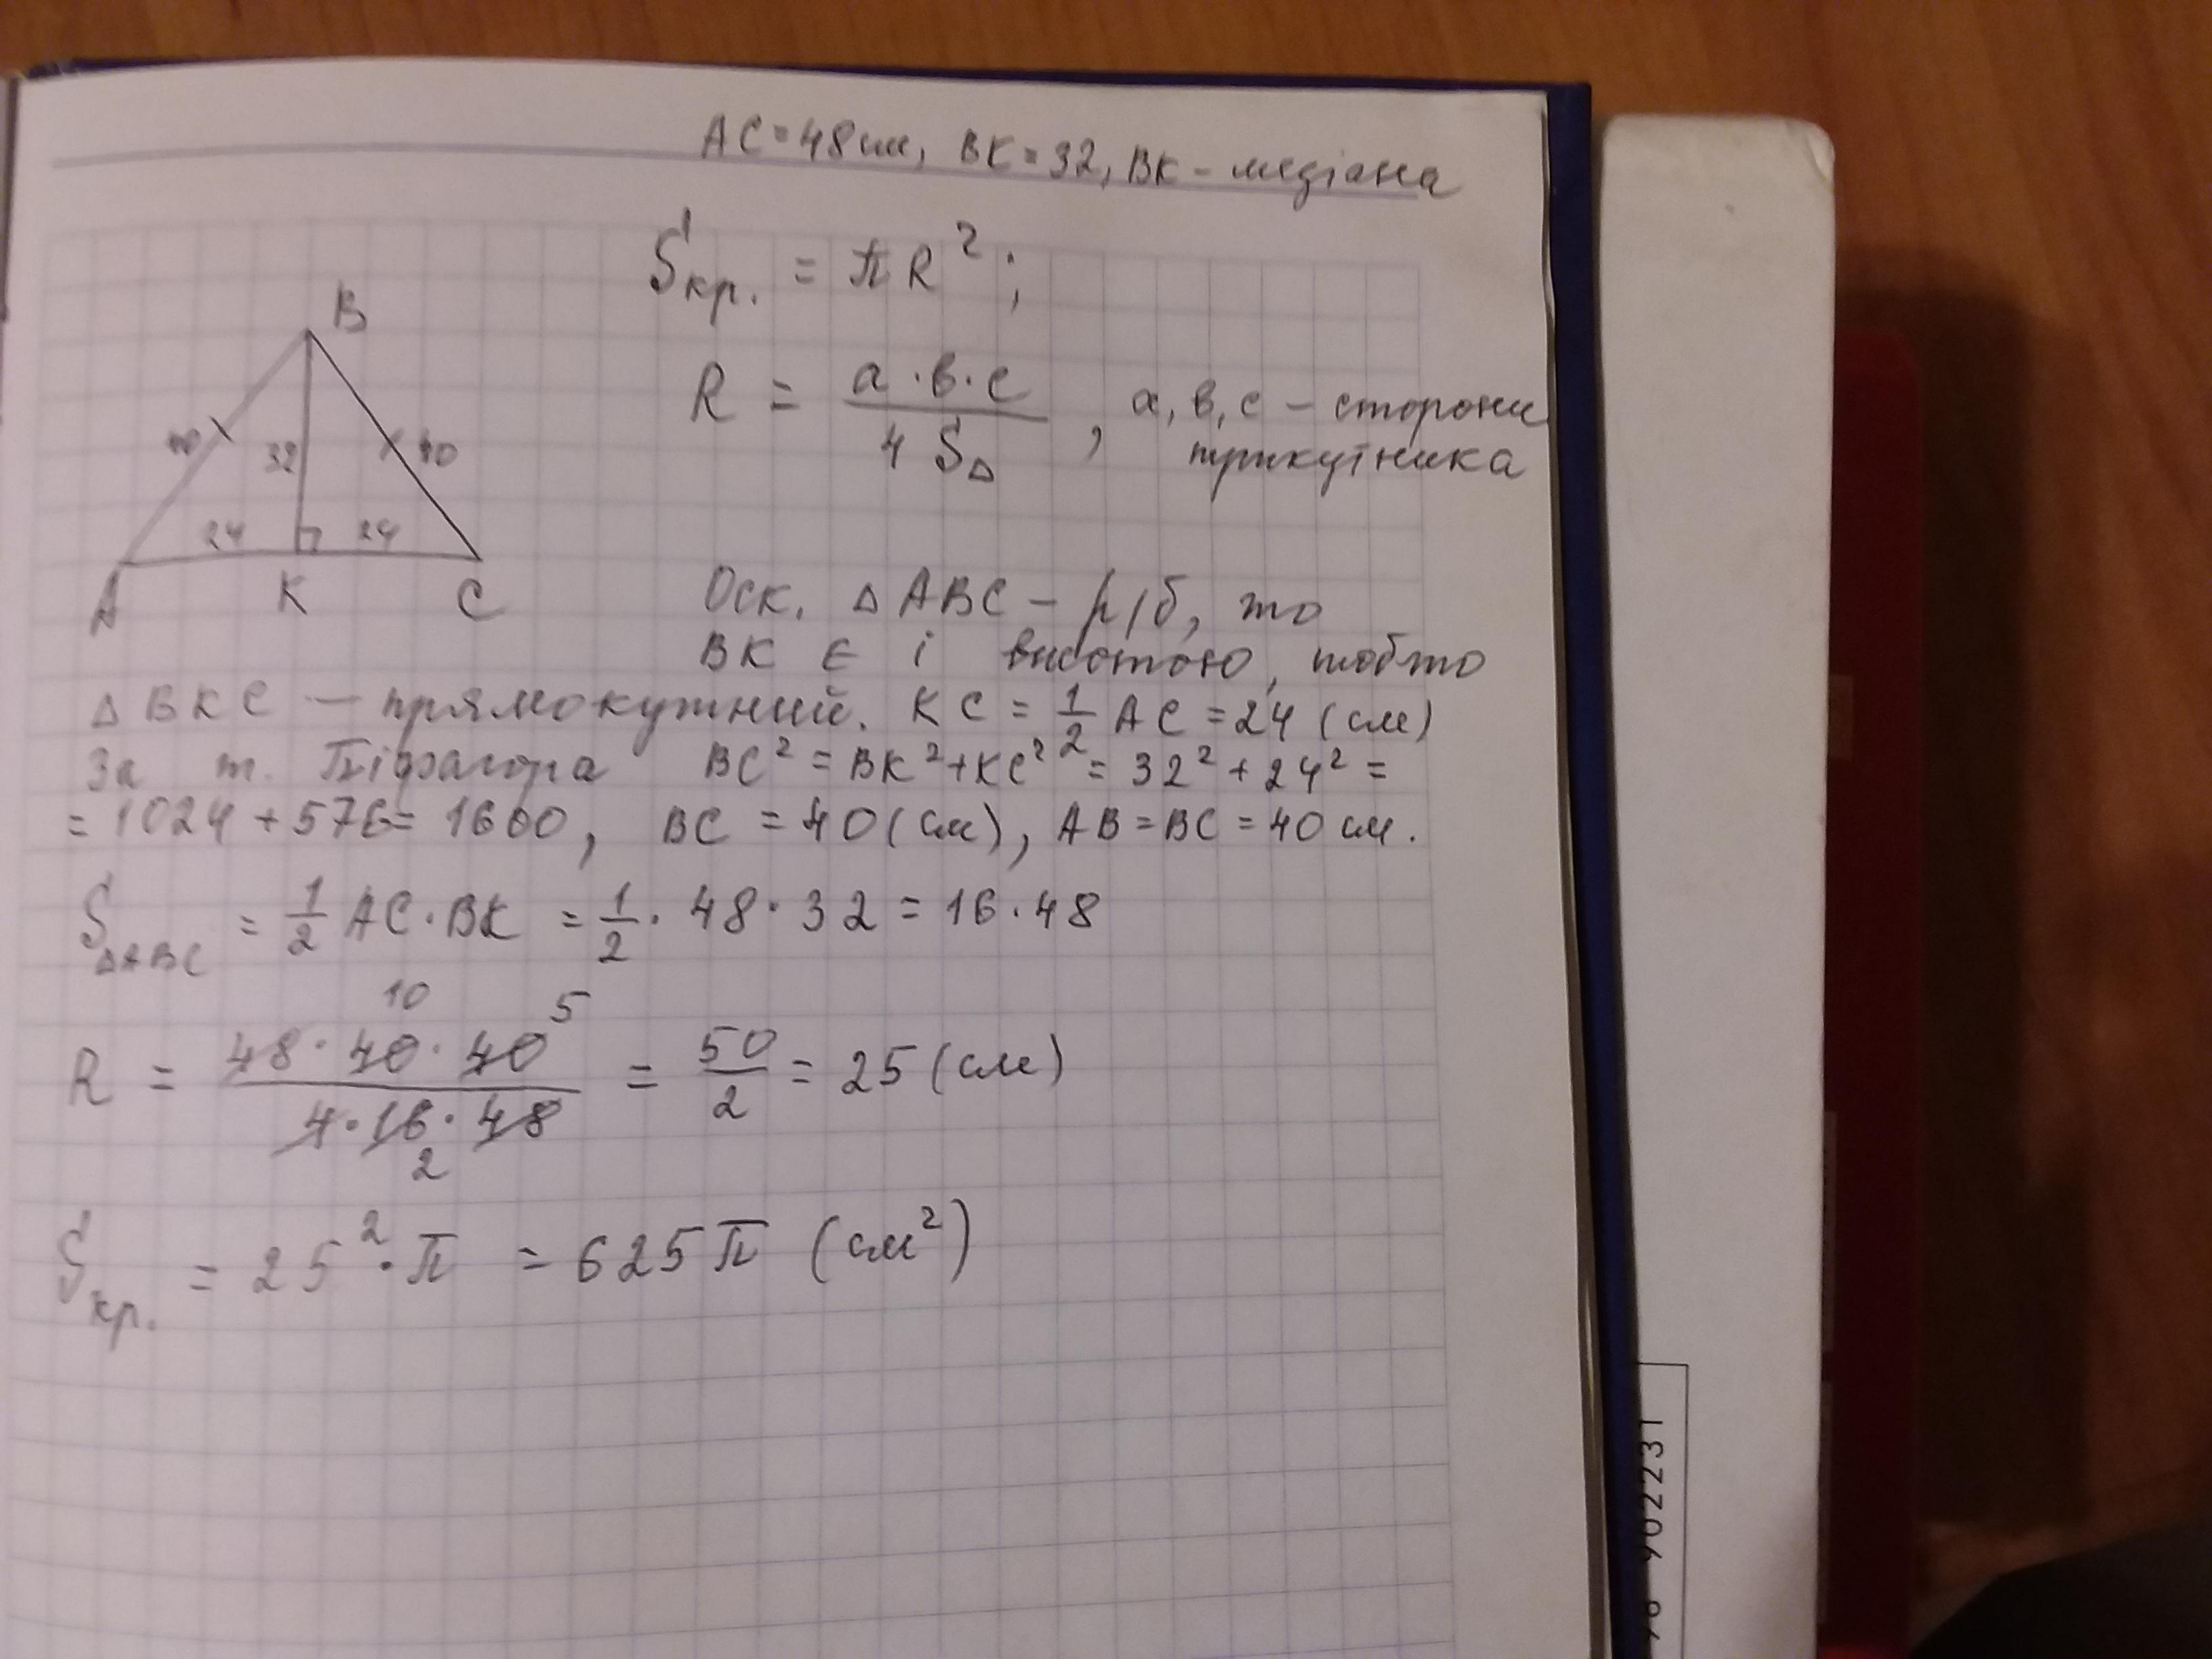 AC = 48 см, BK = 32, BK - медіана
Sкр. = πR²;
B
R = a·в·c / 4 S△ , a, в, c – сторони
трикутника
40 32 40
24 24
A K C
Оск. △ABC – р/б, то
BK є і висотою, тобто
△BKC – прямокутний. KC = 1/2 AC = 24 (см)
За т. Піфагора BC² = BK² + KC² = 32² + 24² =
= 1024 + 576 = 1600, BC = 40 (см), AB = BC = 40 см.
S△ABC = 1/2 AC·BK = 1/2 · 48 · 32 = 16 · 48
10 5
R = 48·40·40 / 4·16·48 = 50/2 = 25 (см)
2
Sкр. = 25²·π = 625π (см²)